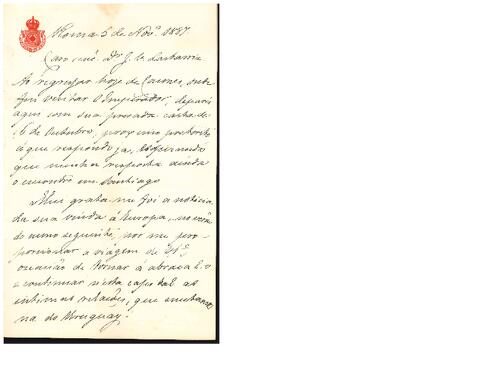 Roma 5 de Nov. 1887
Caro cui. Dr J. V. Lastarria
Ao regressar hoje de Cannes, onde
fui visitar o Imperador, deparei
aqui com sua presada carta de
6 de Outubro, proximo preterito
á que respondo já, esperando
que minha resposta ainda
o encontre em Santiago
grata me foi a noticia
da sua vinda á Europa, no verão
do anno seguinte, por me pro-
porcionar a viagem de V. E.
occasião de tornar á abraçal-o
e continuar nesta capital as
intimas relações, que
do Uruguay.